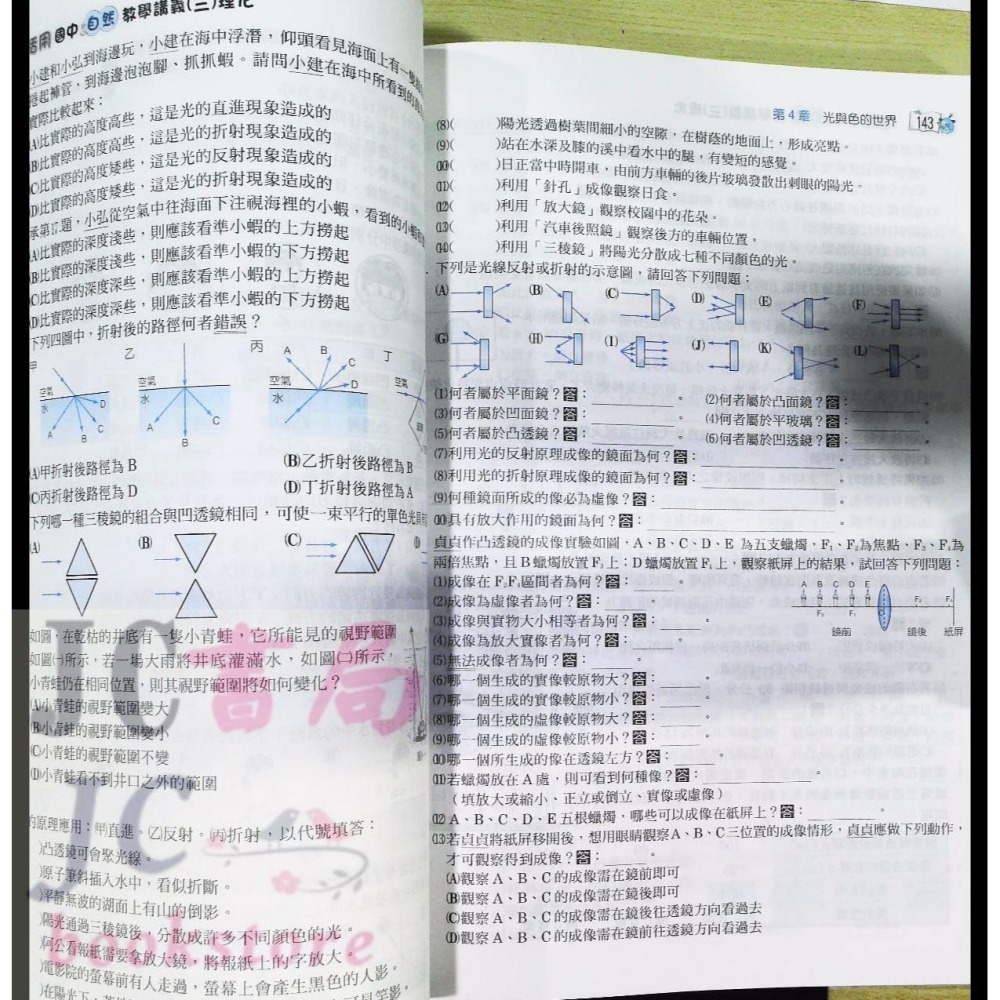 活用 國中 自然 教學講義(三)理化
小建和小弘到海邊玩，小建在海中浮潛，仰頭看見海面上有一隻
捲起褲管，到海邊泡泡腳、抓抓蝦。請問小建在海中所看到的
實際比較起來：
(A)比實際的高度高些，這是光的直進現象造成的
(B)比實際的高度高些，這是光的折射現象造成的
(C)比實際的高度矮些，這是光的反射現象造成的
(D)比實際的高度矮些，這是光的折射現象造成的
承第17.題，小弘從空氣中往海面下注視海裡的小蝦，看到的小蝦
(A)比實際的深度淺些，則應該看準小蝦的上方撈起
(B)比實際的深度淺些，則應該看準小蝦的下方撈起
(C)比實際的深度深些，則應該看準小蝦的上方撈起
(D)比實際的深度深些，則應該看準小蝦的下方撈起
下列四圖中，折射後的路徑何者錯誤？
甲 乙 丙 丁
空氣 水 A B C D
空氣 水 A B C
空氣 水 A B C D
空氣
(A)甲折射後路徑為 B (B)乙折射後路徑為 B
(C)丙折射後路徑為 D (D)丁折射後路徑為 A
下列哪一種三稜鏡的組合與凹透鏡相同，可使一束平行的單色光
(A) (B) (C) (D)
如圖，在乾枯的井底有一隻小青蛙，它所能見的視野範圍
如圖(一)所示，若一場大雨將井底灌滿水，如圖(二)所示，
小青蛙仍在相同位置，則其視野範圍將如何變化？
(A)小青蛙的視野範圍變大
(B)小青蛙的視野範圍變小
(C)小青蛙的視野範圍不變
(D)小青蛙看不到井口之外的範圍
的原理應用：(甲)直進。(乙)反射。(丙)折射，以代號填答：
)凸透鏡可會聚光線。
)原子筆斜插入水中，看似折斷。
)平靜無波的湖面上有山的倒影。
)陽光通過三稜鏡後，分散成許多不同顏色的光。
)阿公看報紙需要拿放大鏡，將報紙上的字放大。
)電影院的螢幕前有人走過，螢幕上會產生黑色的人影。
)在陽光下，
JC書局
JC
bookstore
第 4 章 光與色的世界 143
(8)( )陽光透過樹葉間細小的空隙，在樹蔭的地面上，形成亮點。
(9)( )站在水深及膝的溪中看水中的腿，有變短的感覺。
(10)( )日正當中時開車，由前方車輛的後片玻璃發散出刺眼的陽光。
(11)( )利用「針孔」成像觀察日食。
(12)( )利用「放大鏡」觀察校園中的花朵。
(13)( )利用「汽車後照鏡」觀察後方的車輛位置。
(14)( )利用「三稜鏡」將陽光分散成七種不同顏色的光。
下列是光線反射或折射的示意圖，請回答下列問題：
(A) (B) (C) (D) (E) (F)
(G) (H) (I) (J) (K) (L)
(1)何者屬於平面鏡？答： 。 (2)何者屬於凸面鏡？答： 。
(3)何者屬於凹面鏡？答： 。 (4)何者屬於平玻璃？答： 。
(5)何者屬於凸透鏡？答： 。 (6)何者屬於凹透鏡？答： 。
(7)利用光的反射原理成像的鏡面為何？答： 。
(8)利用光的折射原理成像的鏡面為何？答： 。
(9)何種鏡面所成的像必為虛像？答： 。
(10)具有放大作用的鏡面為何？答： 。
貞貞作凸透鏡的成像實驗如圖，A、B、C、D、E 為五支蠟燭，F₁、F₂為焦點、F₃、F₄為
兩倍焦點，且 B 蠟燭放置 F₃ 上；D 蠟燭放置 F₁ 上，觀察紙屏上的結果，試回答下列問題：
(1)成像在 F₂F₄區間者為何？答： 。
(2)成像為虛像者為何？答： 。
(3)成像與實物大小相等者為何？答： 。
(4)成像為放大實像者為何？答： 。
(5)無法成像者為何？答： 。
A B C D E
F₃ F₁ F₂ F₄
鏡前 鏡後 紙屏
(6)哪一個生成的實像較原物大？答： 。
(7)哪一個生成的實像較原物小？答： 。
(8)哪一個生成的虛像較原物大？答： 。
(9)哪一個生成的虛像較原物小？答： 。
(10)哪一個所生成的像在透鏡左方？答： 。
(11)若蠟燭放在 A 處，則可看到何種像？答： 。
（填放大或縮小、正立或倒立、實像或虛像）
(12) A、B、C、D、E 五根蠟燭，哪些可以成像在紙屏上？答： 。
(13)若貞貞將紙屏移開後，想用眼睛觀察 A、B、C 三位置的成像情形，貞貞應做下列動作，
才可觀察得到成像？答： 。
(A)觀察 A、B、C 的成像需在鏡前即可
(B)觀察 A、B、C 的成像需在鏡後即可
(C)觀察 A、B、C 的成像需在鏡後往透鏡方向看過去
(D)觀察 A、B、C 的成像需在鏡前往透鏡方向看過去